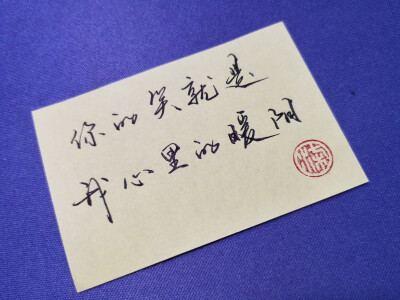 你的笑就是
我心里的暖阳